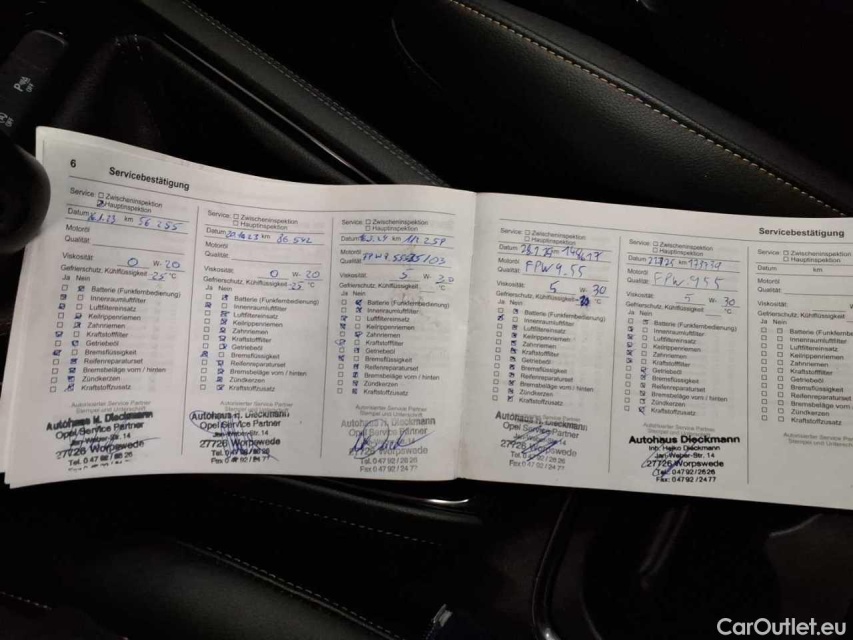 6 Servicebestätigung
Service: Zwischeninspektion
Hauptinspektion
Datum km 56.255
Motoröl
Qualität
Viskosität: 0 W- 20
Gefrierschutz, Kühlflüssigkeit -25 °C
Ja Nein
Batterie (Funkfernbedienung)
Innenraumluftfilter
Luftfiltereinsatz
Keilrippenriemen
Zahnriemen
Kraftstofffilter
Getriebeöl
Bremsflüssigkeit
Reifenreparaturset
Bremsbeläge vorn / hinten
Zündkerzen
Kraftstoffzusatz
Autorisierter Service Partner
Stempel und Unterschrift
Autohaus H. Dieckmann
Opel Service Partner
Jan-Weber-Str. 14
27726 Worpswede
Service: Zwischeninspektion
Hauptinspektion
Datum km 86.542
Motoröl
Qualität
Viskosität: 0 W- 20
Gefrierschutz, Kühlflüssigkeit -25 °C
Ja Nein
Batterie (Funkfernbedienung)
Innenraumluftfilter
Luftfiltereinsatz
Keilrippenriemen
Zahnriemen
Kraftstofffilter
Getriebeöl
Bremsflüssigkeit
Reifenreparaturset
Bremsbeläge vorn / hinten
Zündkerzen
Kraftstoffzusatz
Autorisierter Service Partner
Autohaus H. Dieckmann
Opel Service Partner
Jan-Weber-Str. 14
27726 Worpswede
Service: Zwischeninspektion
Hauptinspektion
Datum km
Motoröl
Qualität
Viskosität: 5 W- 30
Gefrierschutz, Kühlflüssigkeit °C
Ja Nein
Batterie (Funkfernbedienung)
Innenraumluftfilter
Luftfiltereinsatz
Keilrippenriemen
Zahnriemen
Kraftstofffilter
Getriebeöl
Bremsflüssigkeit
Reifenreparaturset
Bremsbeläge vorn / hinten
Zündkerzen
Kraftstoffzusatz
Autorisierter Service Partner
Stempel und Unterschrift
Autohaus H. Dieckmann
Opel Service Partner
27726 Worpswede
Tel. 0 47 92 / 26 26
Fax 0 47 92 / 24 77
Service: Zwischeninspektion
Hauptinspektion
Datum km
Motoröl
Qualität FPW9.55
Viskosität: 5 W- 30
Gefrierschutz, Kühlflüssigkeit °C
Ja Nein
Batterie (Funkfernbedienung)
Innenraumluftfilter
Luftfiltereinsatz
Keilrippenriemen
Zahnriemen
Kraftstofffilter
Getriebeöl
Bremsflüssigkeit
Reifenreparaturset
Bremsbeläge vorn / hinten
Zündkerzen
Kraftstoffzusatz
Autohaus H. Dieckmann
Opel Service Partner
27726 Worpswede
Tel. 0 47 92 / 26 26
Fax 0 47 92 / 24 77
Servicebestätigung
Service: Zwischeninspektion
Hauptinspektion
Datum km
Motoröl
Qualität FPW 955
Viskosität: 5 W- 30
Gefrierschutz, Kühlflüssigkeit °C
Ja Nein
Batterie (Funkfernbedienung)
Innenraumluftfilter
Luftfiltereinsatz
Keilrippenriemen
Zahnriemen
Kraftstofffilter
Getriebeöl
Bremsflüssigkeit
Reifenreparaturset
Bremsbeläge vorn / hinten
Zündkerzen
Kraftstoffzusatz
Autorisierter Service Partner
Autohaus Dieckmann
Inh. Heiko Dieckmann
Jan-Weber-Str. 14
27726 Worpswede
Tel. 04792/2626
Fax: 04792/2477
Service: Zwischeninspektion
Hauptinspektion
Datum km
Motoröl
Qualität
Viskosität: W-
Gefrierschutz, Kühlflüssigkeit
Ja Nein
Batterie (Funkfernbe
Innenraumluftfilter
Luftfiltereinsatz
Keilrippenriemen
Zahnriemen
Kraftstofffilter
Getriebeöl
Bremsflüssigkeit
Reifenreparaturset
Bremsbeläge vorn
Zündkerzen
Kraftstoffzusatz
Autorisierter Service
CarOutlet.eu